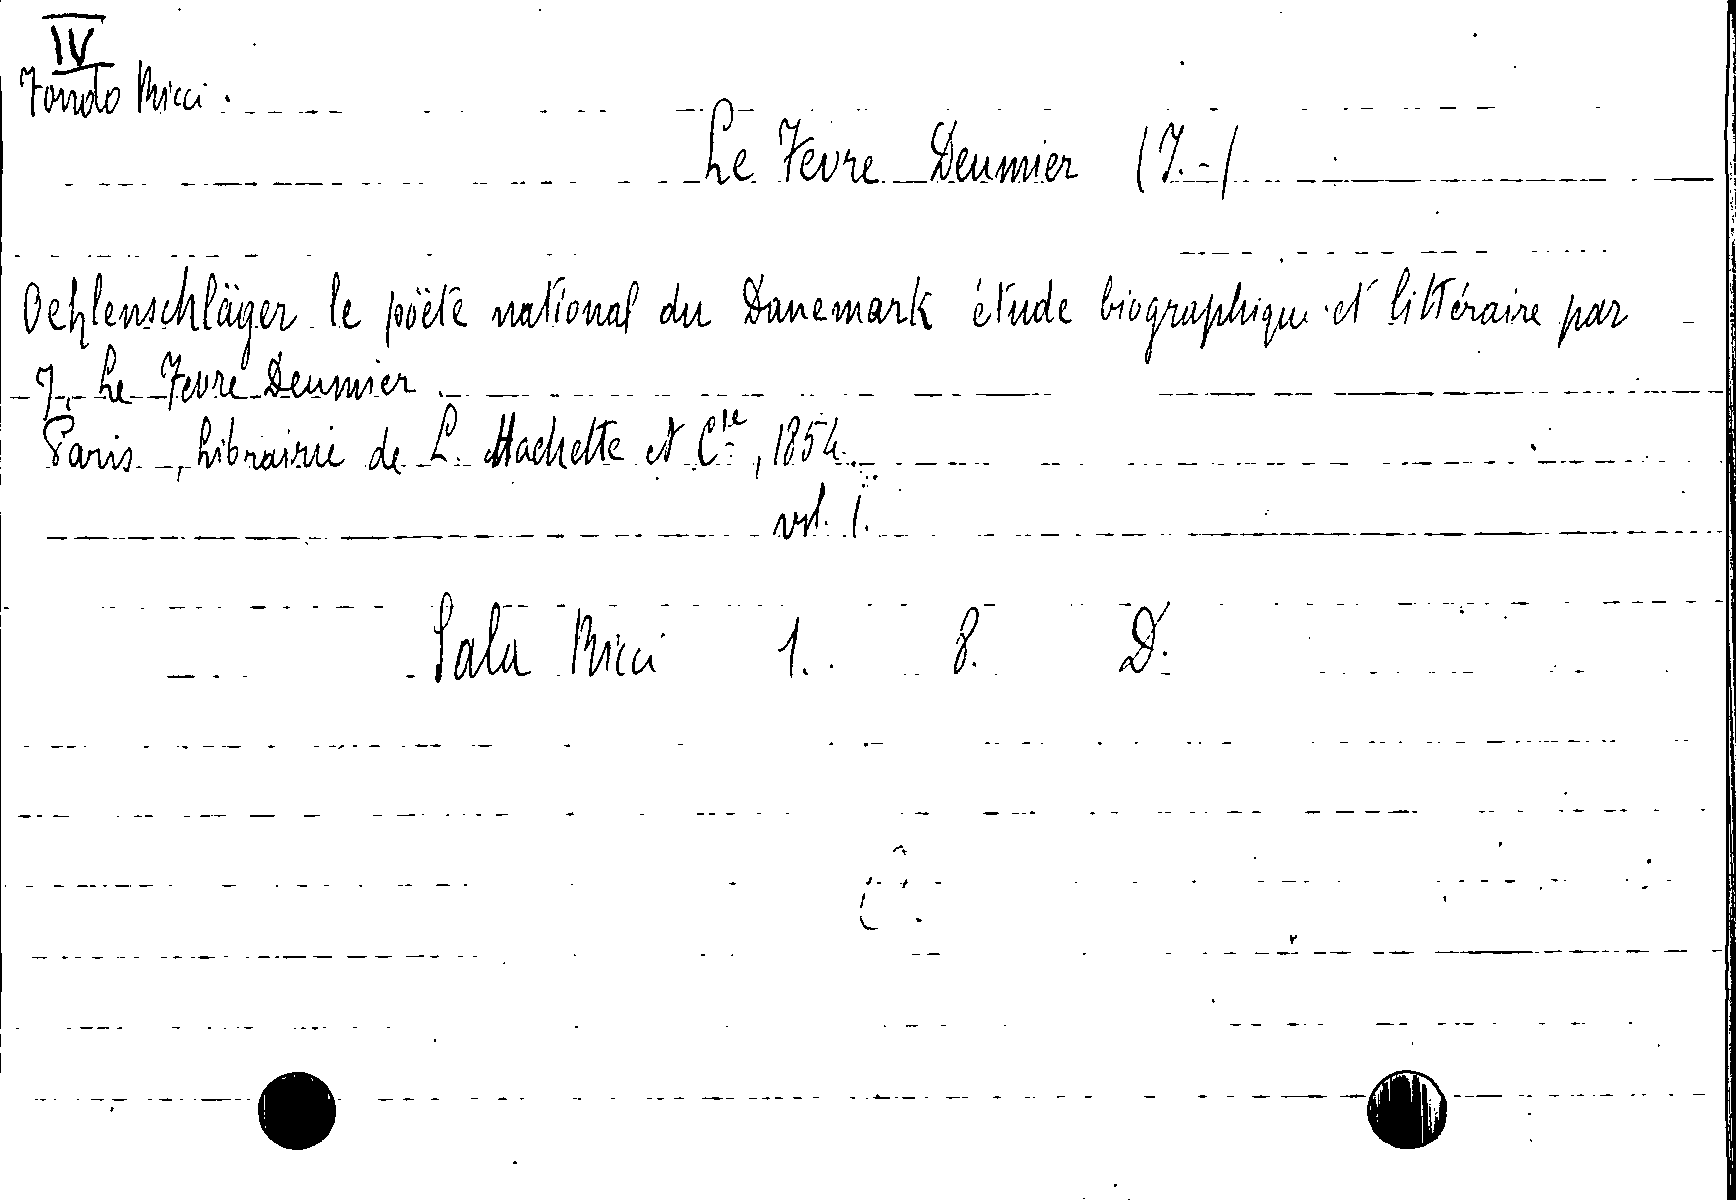 IV
Fondo Ricci.
Le Fevre Deumier (J.-)
Oehlenschläger le poëte national du Danemark étude biographique et littéraire par
J. Le Fevre Deumier
Paris, Librairie de L. Hachette et Cie, 1854.
vol. 1.
Sala Ricci 1. 8. D.